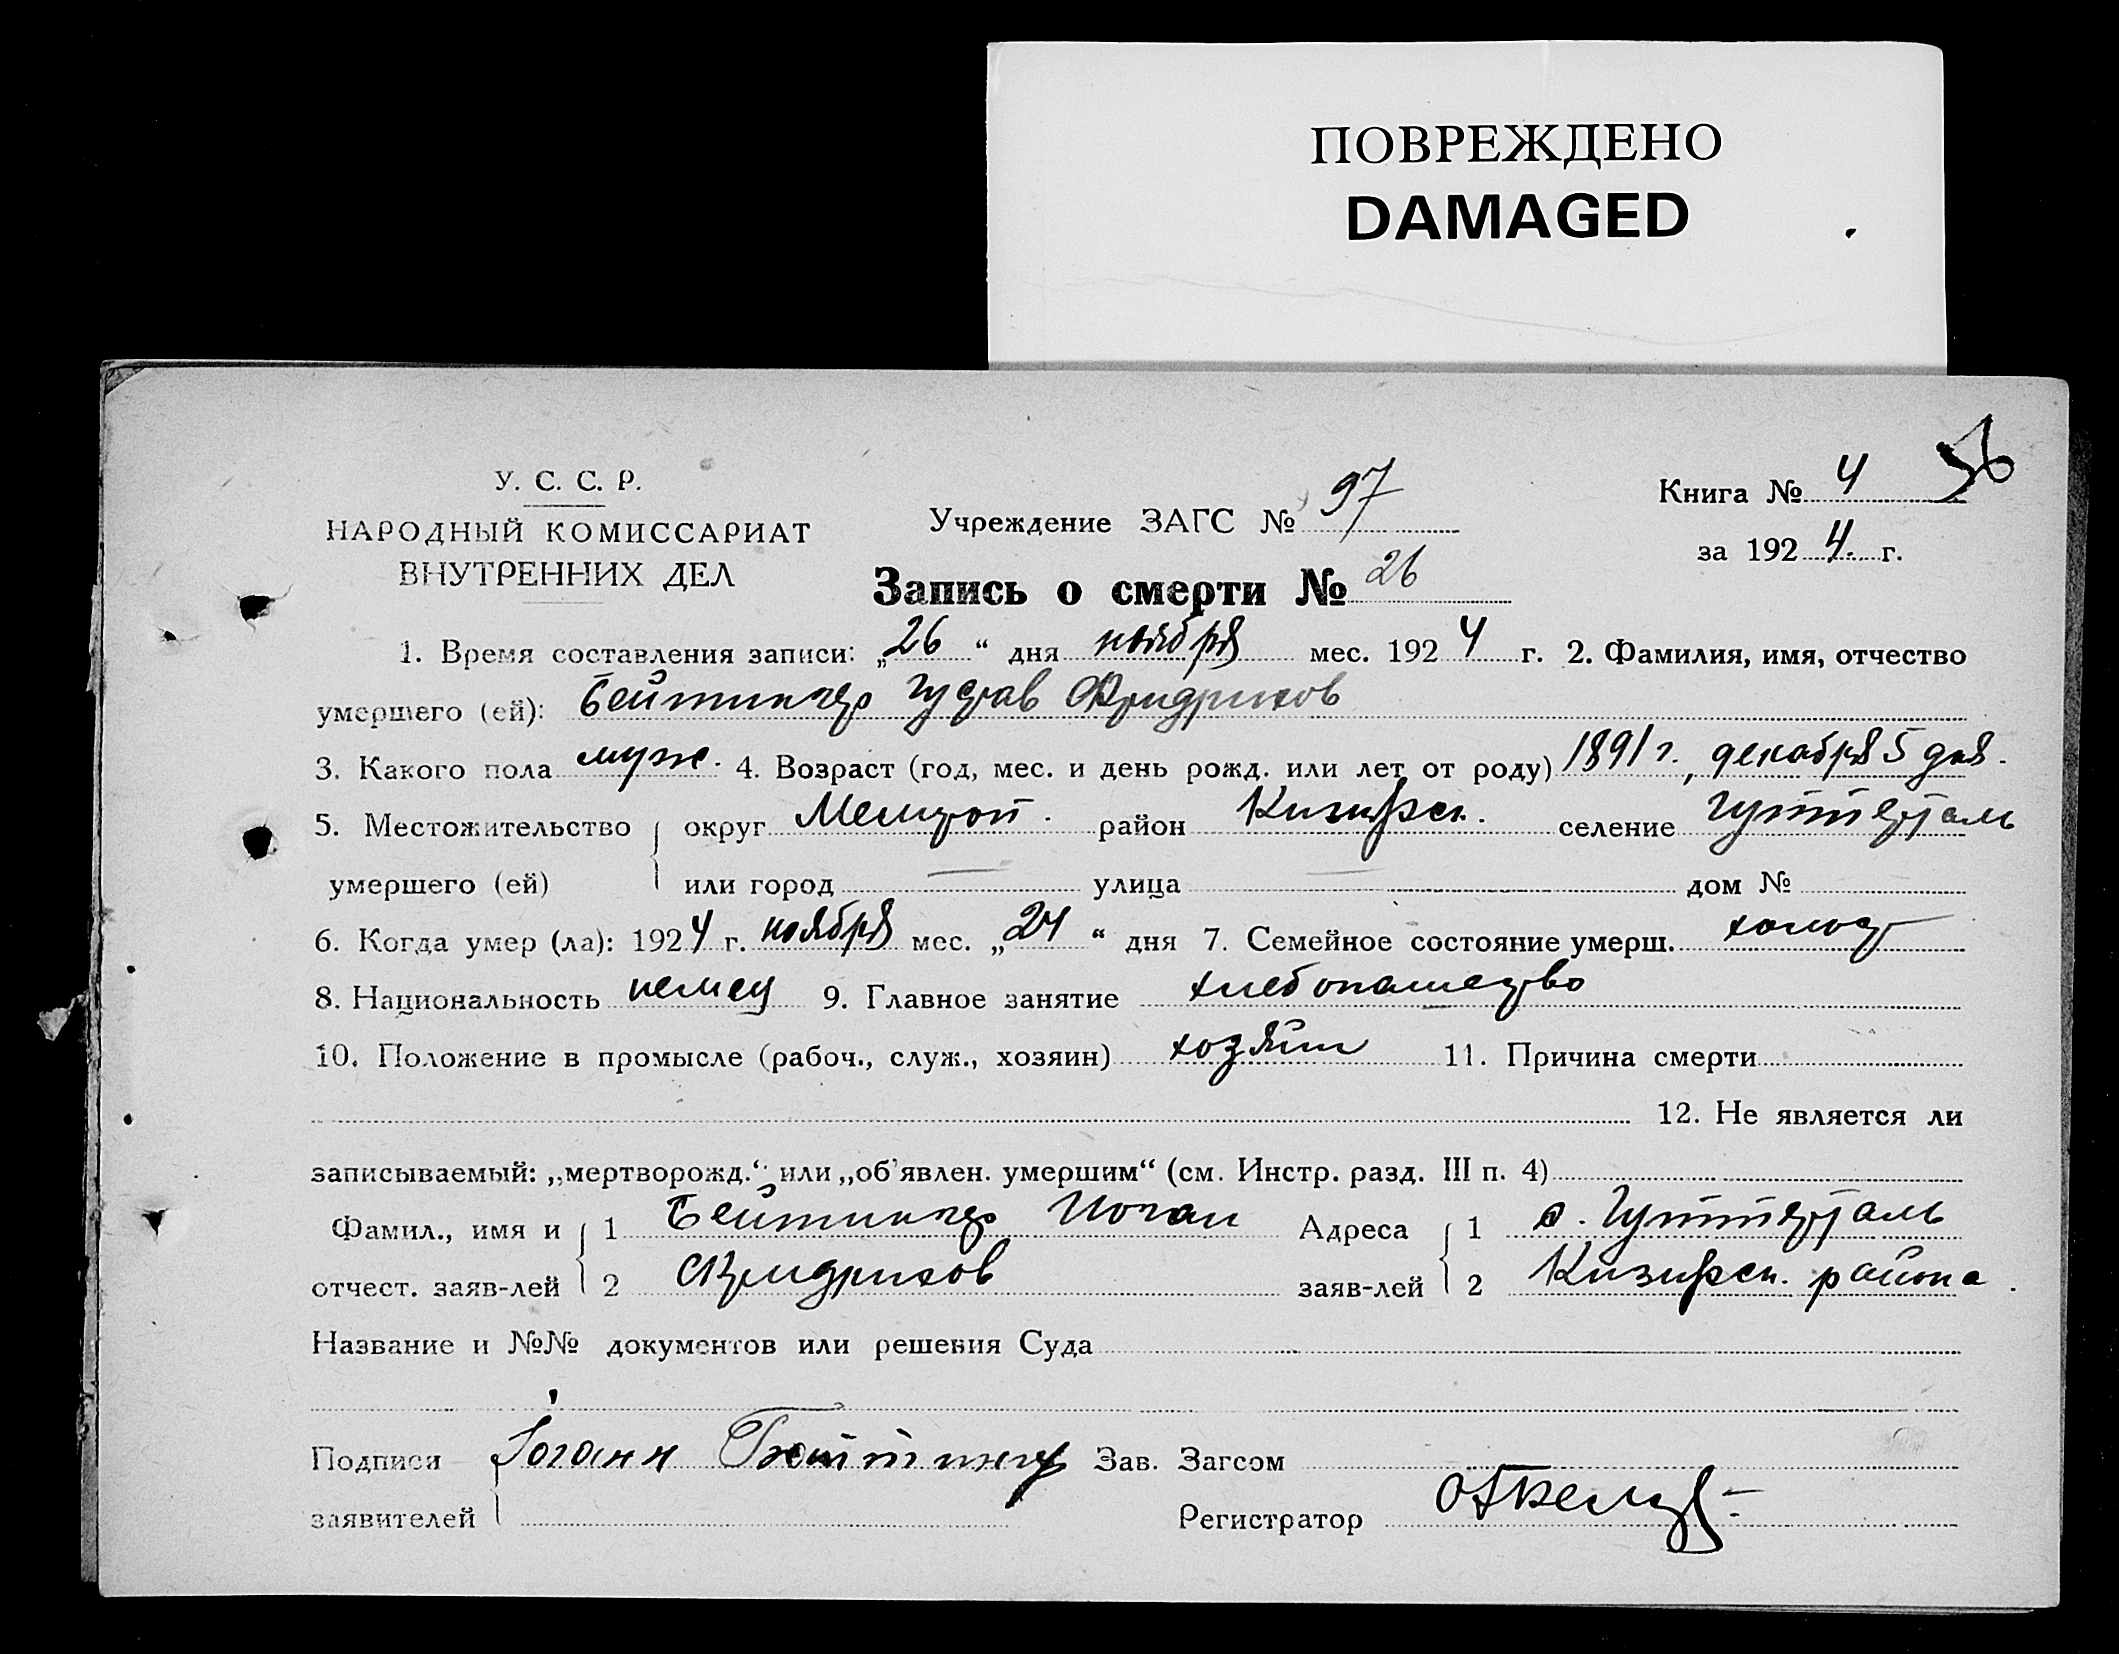 ПОВРЕЖДЕНО
DAMAGED
56
У. С. С. Р.
НАРОДНЫЙ КОМИССАРИАТ
ВНУТРЕННИХ ДЕЛ
Учреждение ЗАГС № 97
Книга № 4
за 1924. г.
Запись о смерти № 26
1. Время составления записи: „26“ дня ноября мес. 1924 г. 2. Фамилия, имя, отчество
умершего (ей): Бейтингер Густав Фридрихов
3. Какого пола муж. 4. Возраст (год, мес. и день рожд. или лет от роду) 1891 г., декабря 5 дня.
5. Местожительство округ Мелитоп. район Кизиярск. селение Гуттерталь
умершего (ей) или город — улица — дом №
6. Когда умер (ла): 1924 г. ноября мес. „24“ дня 7. Семейное состояние умерш. холост
8. Национальность немец 9. Главное занятие хлебопашество
10. Положение в промысле (рабоч., служ., хозяин) хозяин 11. Причина смерти
12. Не является ли
записываемый: „мертворожд.“ или „об'явлен. умершим“ (см. Инстр. разд. III п. 4)
Фамил., имя и 1 Бейтингер Иоган Адреса 1 с. Гуттерталь
отчест. заяв-лей 2 Фридрихов заяв-лей 2 Кизиярск. района.
Название и №№ документов или решения Суда
Подписи Иоганн Зав. Загсом
заявителей Регистратор